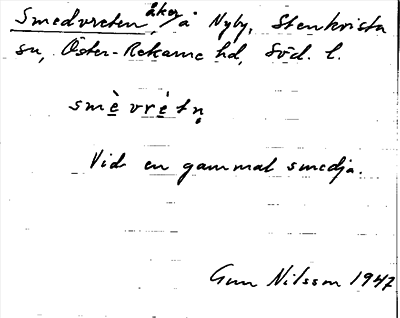 Smedvreten, åker å Nyby, Stenkvista
sn, Öster-Rekarne hd, Söd. l.
smè̲ vrè̲tn̥
Vid en gammal smedja.
Gun Nilsson 1947